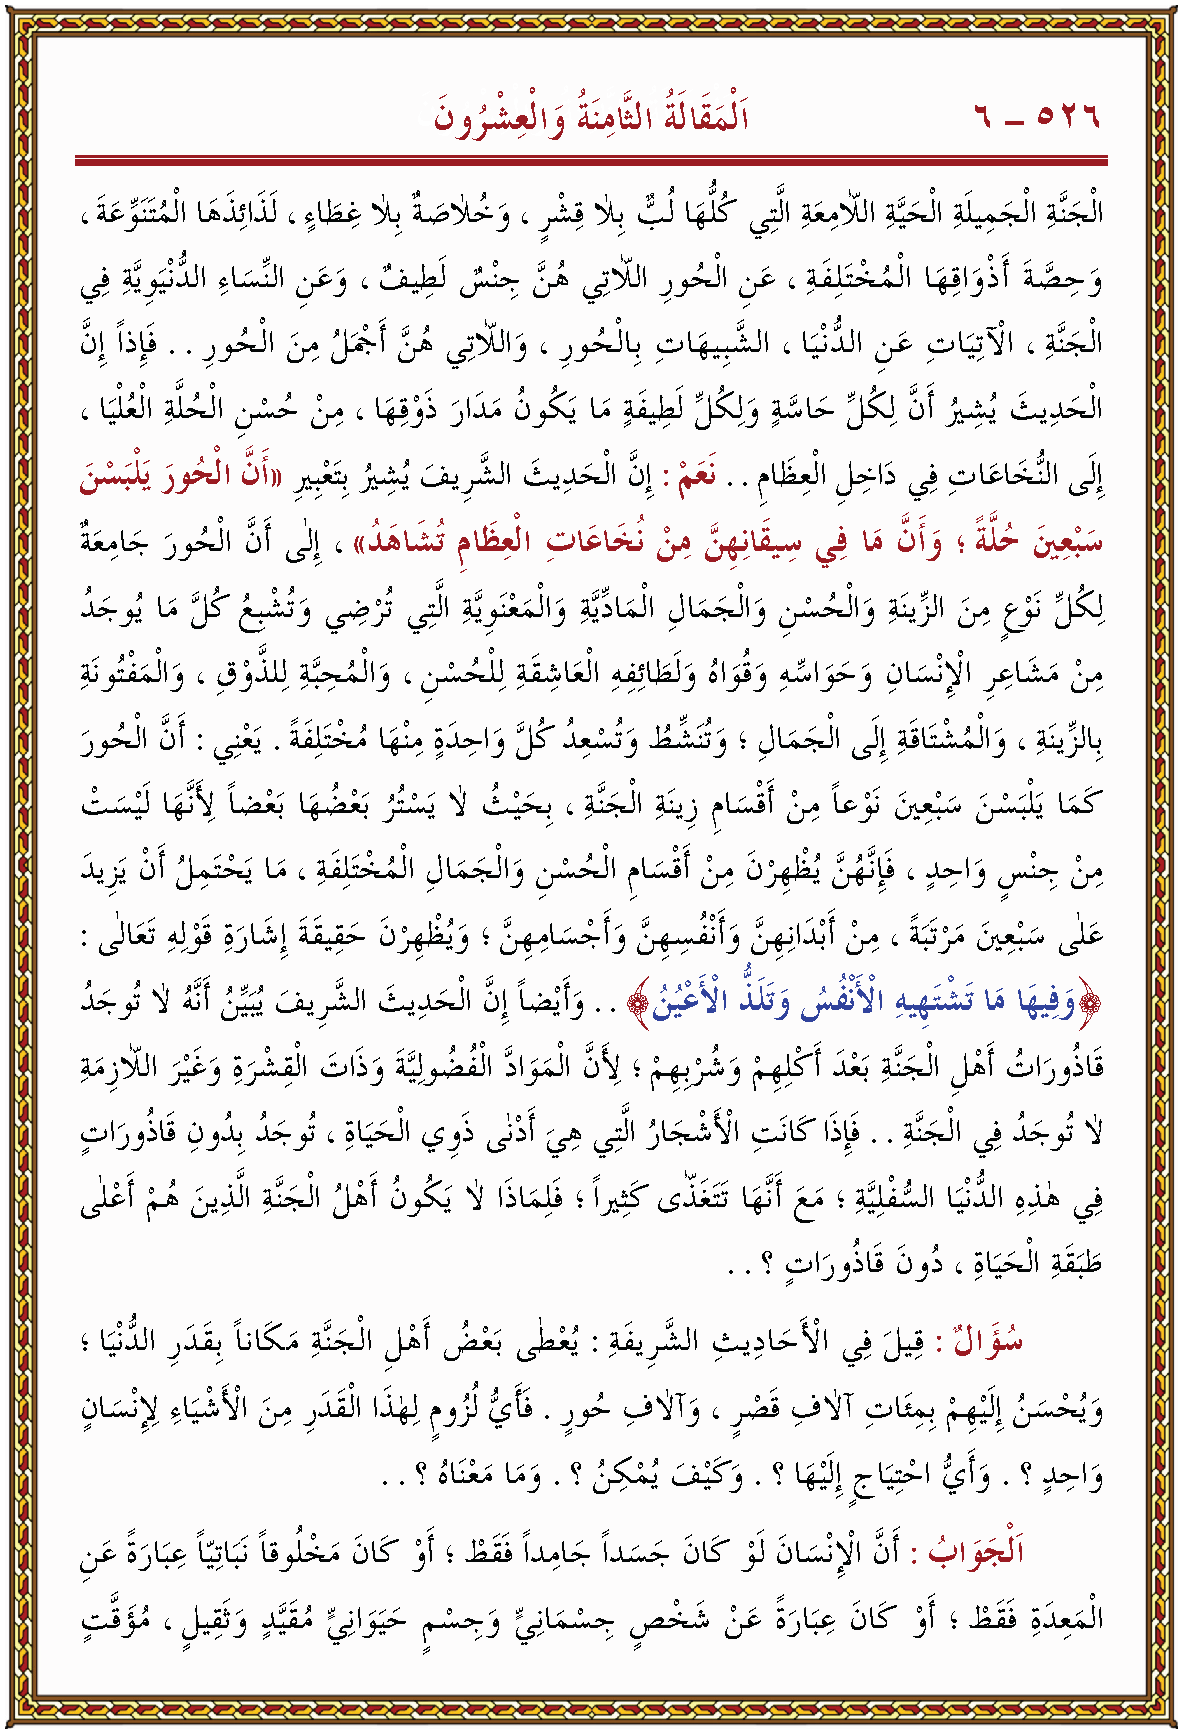 ٥٢٦ – ٦ اَلْمَقَالَةُ الثَّامِنَةُ وَالْعِشْرُونَ
الْجَنَّةِ الْجَمِيلَةِ الْحَيَّةِ اللّامِعَةِ الَّتِي كُلُّهَا لُبٌّ بِلاٰ قِشْرٍ ، وَخُلاٰصَةٌ بِلاٰ غِطَاءٍ ، لَذَائِذَهَا الْمُتَنَوِّعَةَ ،
وَحِصَّةَ أَذْوَاقِهَا الْمُخْتَلِفَةِ ، عَنِ الْحُورِ اللّاٰتِي هُنَّ جِنْسٌ لَطِيفٌ ، وَعَنِ النِّسَاءِ الدُّنْيَوِيَّةِ فِي
الْجَنَّةِ ، الْآتِيَاتِ عَنِ الدُّنْيَا ، الشَّبِيهَاتِ بِالْحُورِ ، وَاللّاٰتِي هُنَّ أَجْمَلُ مِنَ الْحُورِ . . فَإِذاً إِنَّ
الْحَدِيثَ يُشِيرُ أَنَّ لِكُلِّ حَاسَّةٍ وَلِكُلِّ لَطِيفَةٍ مَا يَكُونُ مَدَارَ ذَوْقِهَا ، مِنْ حُسْنِ الْحُلَّةِ الْعُلْيَا ،
إِلَى النُّخَاعَاتِ فِي دَاخِلِ الْعِظَامِ . . نَعَمْ : إِنَّ الْحَدِيثَ الشَّرِيفَ يُشِيرُ بِتَعْبِيرِ «أَنَّ الْحُورَ يَلْبَسْنَ
سَبْعِينَ حُلَّةً ؛ وَأَنَّ مَا فِي سِيقَانِهِنَّ مِنْ نُخَاعَاتِ الْعِظَامِ تُشَاهَدُ» ، إِلٰى أَنَّ الْحُورَ جَامِعَةٌ
لِكُلِّ نَوْعٍ مِنَ الزِّينَةِ وَالْحُسْنِ وَالْجَمَالِ الْمَادِّيَّةِ وَالْمَعْنَوِيَّةِ الَّتِي تُرْضِي وَتُشْبِعُ كُلَّ مَا يُوجَدُ
مِنْ مَشَاعِرِ الْإِنْسَانِ وَحَوَاسِّهِ وَقُوَاهُ وَلَطَائِفِهِ الْعَاشِقَةِ لِلْحُسْنِ ، وَالْمُحِبَّةِ لِلذَّوْقِ ، وَالْمَفْتُونَةِ
بِالزِّينَةِ ، وَالْمُشْتَاقَةِ إِلَى الْجَمَالِ ؛ وَتُنَشِّطُ وَتُسْعِدُ كُلَّ وَاحِدَةٍ مِنْهَا مُخْتَلِفَةً . يَعْنِي : أَنَّ الْحُورَ
كَمَا يَلْبَسْنَ سَبْعِينَ نَوْعاً مِنْ أَقْسَامِ زِينَةِ الْجَنَّةِ ، بِحَيْثُ لاٰ يَسْتُرُ بَعْضُهَا بَعْضاً لِأَنَّهَا لَيْسَتْ
مِنْ جِنْسٍ وَاحِدٍ ، فَإِنَّهُنَّ يُظْهِرْنَ مِنْ أَقْسَامِ الْحُسْنِ وَالْجَمَالِ الْمُخْتَلِفَةِ ، مَا يَحْتَمِلُ أَنْ يَزِيدَ
عَلٰى سَبْعِينَ مَرْتَبَةً ، مِنْ أَبْدَانِهِنَّ وَأَنْفُسِهِنَّ وَأَجْسَامِهِنَّ ؛ وَيُظْهِرْنَ حَقِيقَةَ إِشَارَةِ قَوْلِهِ تَعَالٰى :
﴿وَفِيهَا مَا تَشْتَهِيهِ الْأَنْفُسُ وَتَلَذُّ الْأَعْيُنُ﴾ . . وَأَيْضاً إِنَّ الْحَدِيثَ الشَّرِيفَ يُبَيِّنُ أَنَّهُ لاٰ تُوجَدُ
قَاذُورَاتُ أَهْلِ الْجَنَّةِ بَعْدَ أَكْلِهِمْ وَشُرْبِهِمْ ؛ لِأَنَّ الْمَوَادَّ الْفُضُولِيَّةَ وَذَاتَ الْقِشْرَةِ وَغَيْرَ اللّازِمَةِ
لاٰ تُوجَدُ فِي الْجَنَّةِ . . فَإِذَا كَانَتِ الْأَشْجَارُ الَّتِي هِيَ أَدْنٰى ذَوِي الْحَيَاةِ ، تُوجَدُ بِدُونِ قَاذُورَاتٍ
فِي هٰذِهِ الدُّنْيَا السُّفْلِيَّةِ ؛ مَعَ أَنَّهَا تَتَغَذّٰى كَثِيراً ؛ فَلِمَاذَا لاٰ يَكُونُ أَهْلُ الْجَنَّةِ الَّذِينَ هُمْ أَعْلٰى
طَبَقَةِ الْحَيَاةِ ، دُونَ قَاذُورَاتٍ ؟ . .
سُؤَالٌ : قِيلَ فِي الْأَحَادِيثِ الشَّرِيفَةِ : يُعْطٰى بَعْضُ أَهْلِ الْجَنَّةِ مَكَاناً بِقَدَرِ الدُّنْيَا ؛
وَيُحْسَنُ إِلَيْهِمْ بِمِئَاتِ آلاٰفِ قَصْرٍ ، وَآلاٰفِ حُورٍ . فَأَيُّ لُزُومٍ لِهٰذَا الْقَدَرِ مِنَ الْأَشْيَاءِ لِإِنْسَانٍ
وَاحِدٍ ؟ . وَأَيُّ احْتِيَاجٍ إِلَيْهَا ؟ . وَكَيْفَ يُمْكِنُ ؟ . وَمَا مَعْنَاهُ ؟ . .
اَلْجَوَابُ : أَنَّ الْإِنْسَانَ لَوْ كَانَ جَسَداً جَامِداً فَقَطْ ؛ أَوْ كَانَ مَخْلُوقاً نَبَاتِيّاً عِبَارَةً عَنِ
الْمَعِدَةِ فَقَطْ ؛ أَوْ كَانَ عِبَارَةً عَنْ شَخْصٍ جِسْمَانِيٍّ وَجِسْمٍ حَيَوَانِيٍّ مُقَيَّدٍ وَثَقِيلٍ ، مُؤَقَّتٍ